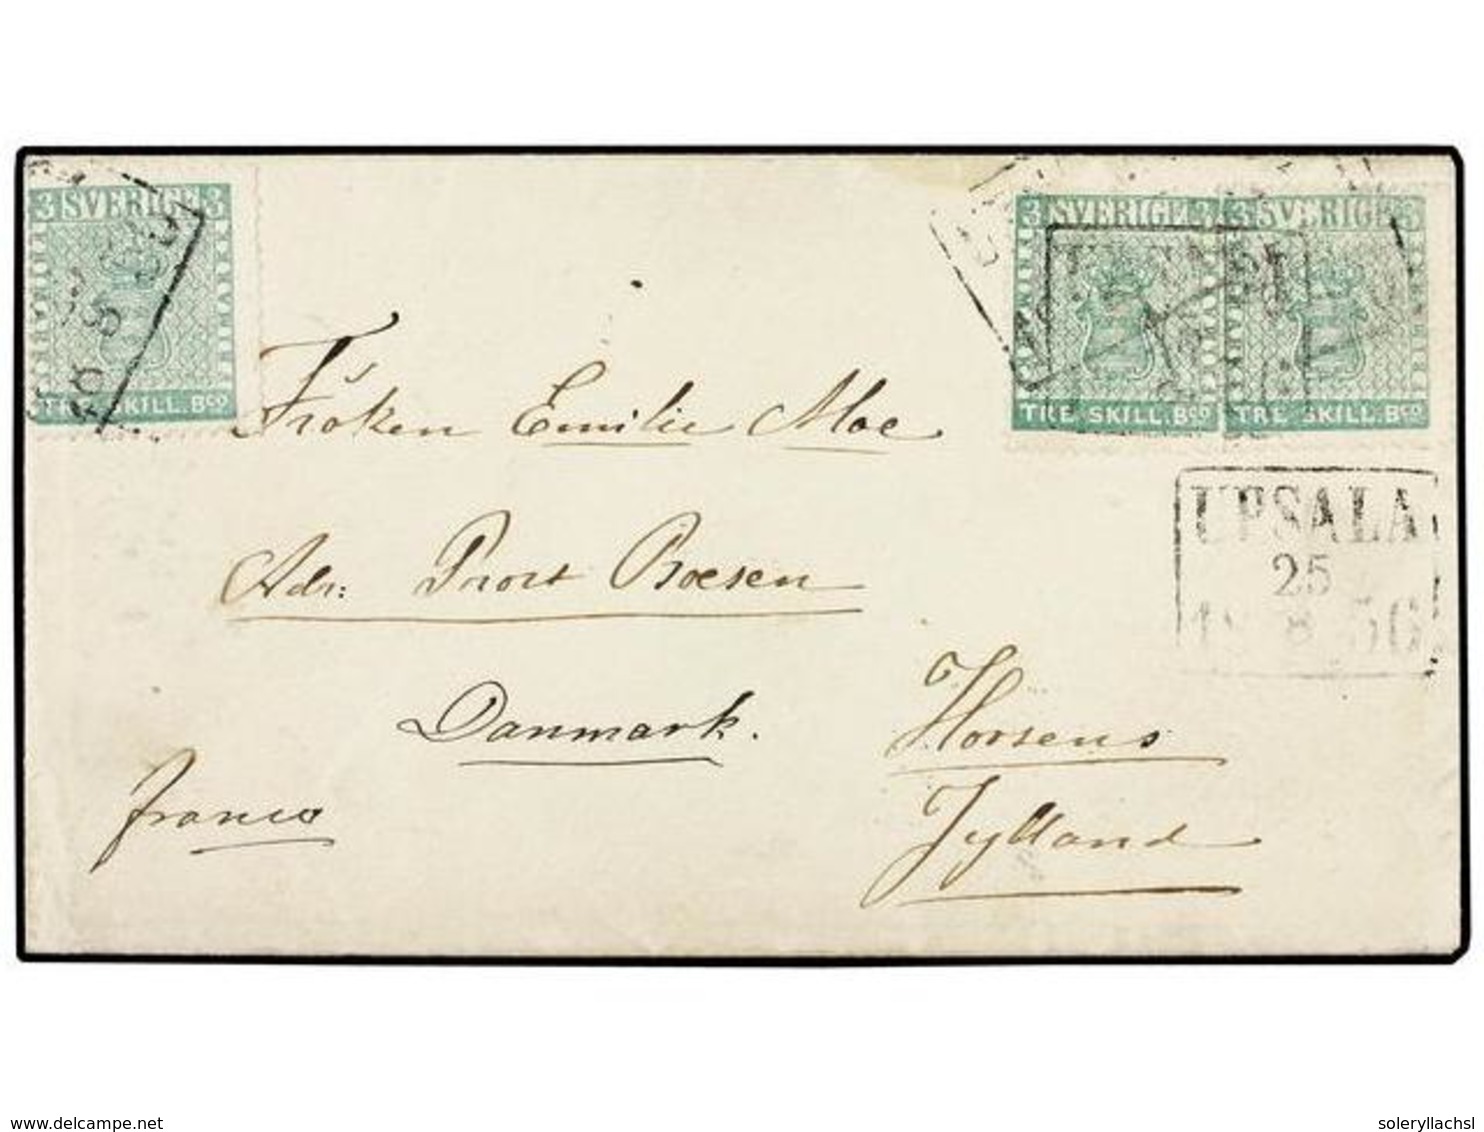 3 SVERIGE 3
TRE SKILL. Bco
3 SVERIGE 3
TRE SKILL. Bco
3 SVERIGE 3
TRE SKILL. Bco
Fröken Emilie Moe
UPSALA
25
8
Adr:
Boesen
Danmark.
Horsens
franco
Jylland
delcampe.net
soleryllachsl